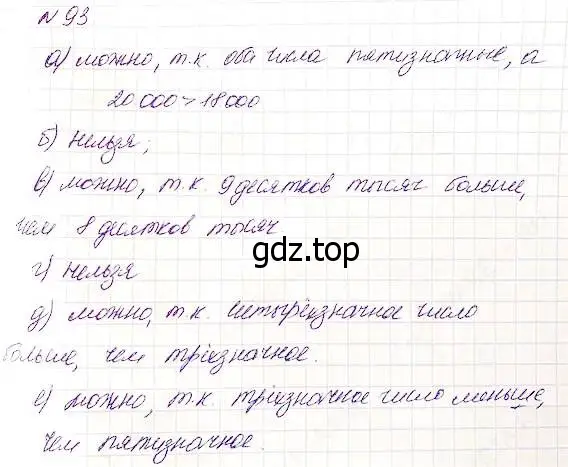 № 93
а) можно, т.к. оба числа пятизначные, а
20 000 > 18 000
б) нельзя;
в) можно, т.к. 9 десятков тысяч больше,
чем 8 десятков тысяч
gdz.top
г) нельзя
д) можно, т.к. четырёхзначное число
больше, чем трёхзначное.
е) можно, т.к. трёхзначное число меньше,
чем пятизначное.